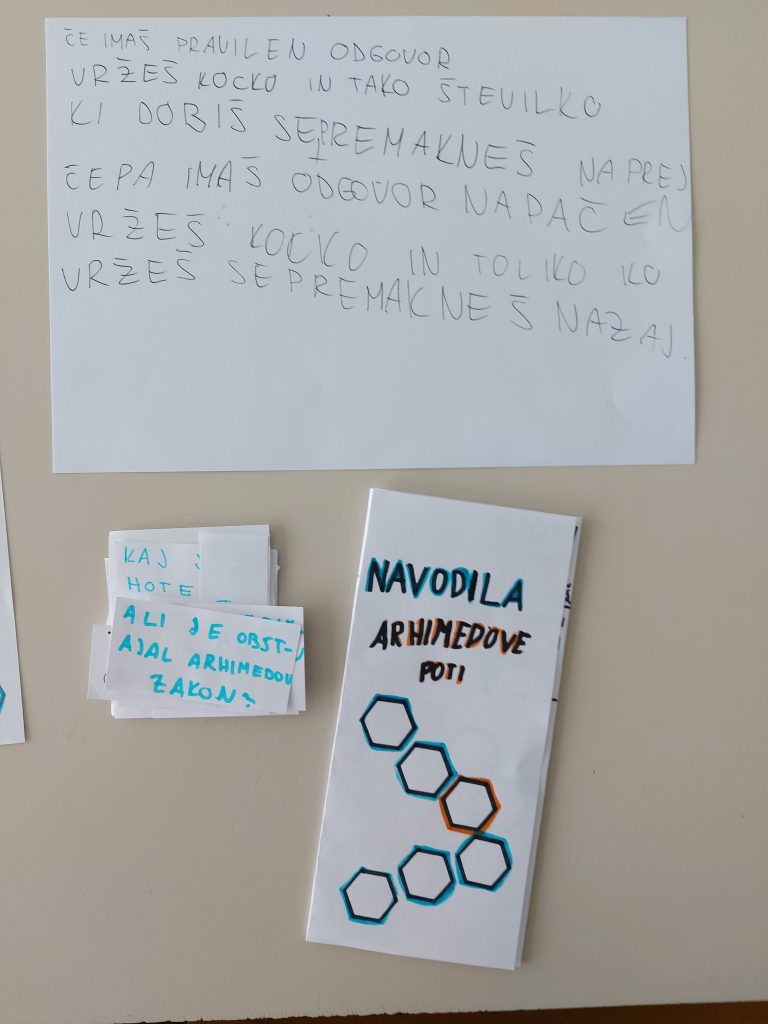 ČE IMAŠ PRAVILEN ODGOVOR
VRŽEŠ KOCKO IN TAKO ŠTEVILKO
KI DOBIŠ SEPREMAKNEŠ NAPREJ
ČEPA IMAŠ ODGOVOR NAPAČEN
VRŽEŠ KOCKO IN TOLIKO KO
VRŽEŠ SEPREMAKNEŠ NAZAJ.
KAJ
HOTE
ALI JE OBST-
AJAL ARHIMEDOV
ZAKON?
NAVODILA
ARHIMEDOVE
POTI